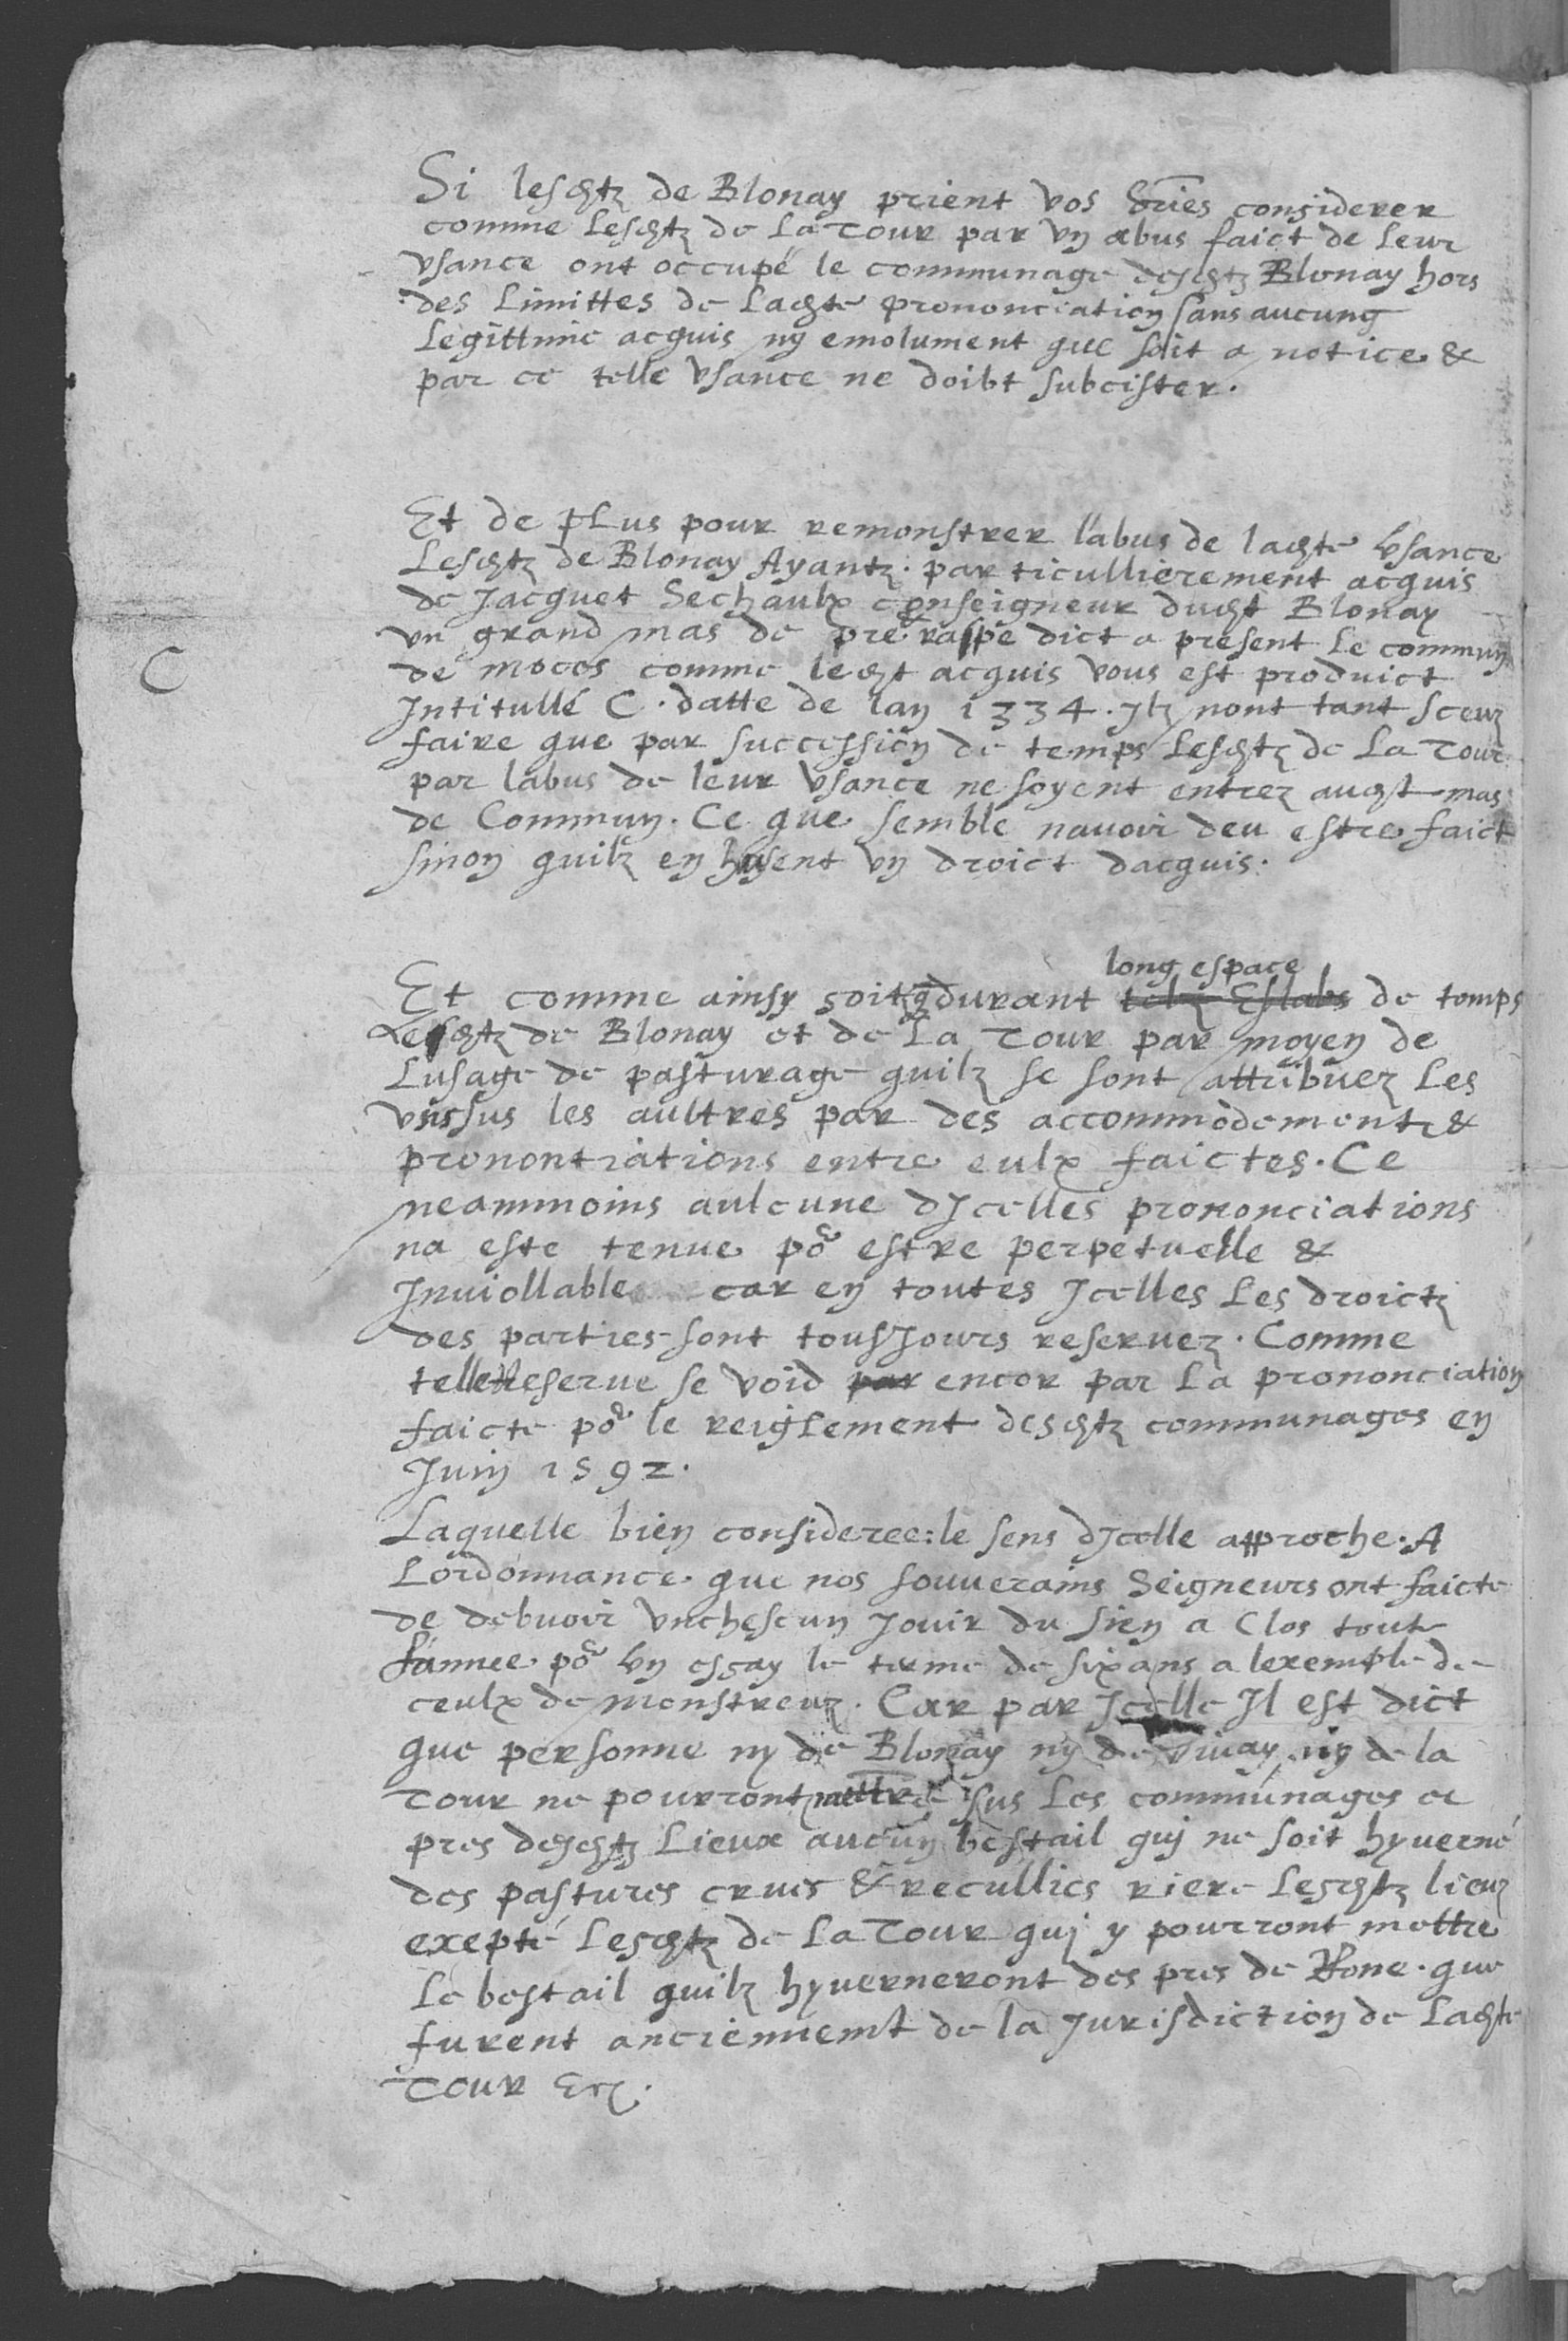 Si lesdtz de Blonay prient vos Sries considerer
comme Lesdtz de La Tour par vn abus faict de Leur
vsance ont occupé le communage desdtz Blonay hors
des Limittes de Ladte prononciation sans aucung
Legittime acquis ny emolument que soit a notice &
par ce telle vsance ne doibt subcister.
Et de pLus pour remonstrer l'abus de ladte vsance
Lesdtz de Blonay Ayantz particullierement acquis
de Jacquet Sechaulx conseigneur dudt Blonay
vn grand mas de pre & raspe dict a present Le commun
de moces comme ledt acquis vous est produict
C
Jntitullé C. datte de lan 1334. Jlz nont tant sceuz
faire que par succession de temps Lesdtz de La Tour
par labus de leur vsance ne soyent entrez audt mas
de Commun. Ce que semble nauoir deu estre faict
sinon quilz en husent vn droict dacquis.
long espace
Et comme ainsy soit q durant telz Eslabs de temps
Lesdtz de Blonay et de La Tour par moyen de
Lusage de pasturage quilz se sont attribuez Les
vns sus les aultres par des accommodementz &
prenontiations entre eulx faictes. Ce
neammoins aulcune dJcelles prononciations
na este tenue po.r estre perpetuelle &
Jnuiollable car en toutes Jcelles Les droictz
des parties sont tousJours reseruez. Comme
telle Reserue se void par encor par La prononciation
faicte po.r le reigLement desdtz communages en
Juin 1592.
Laquelle bien consideree: le sens dJcelle approche. A
Lordonnance que nos souuerains Seigneurs ont faicte
de debuoir vnchescun Jouir du sien a Clos toute
Lannee po.r vn essay le terme de six ans a lexemple de
ceulx de monstreuz. Car par Jcelle Jl est dict
que personne ny de Blonay ny de viuay ny de la
Tour ne pourront mettre sus Les communages et
pres desdtz Lieux aucun bestail quj ne soit hyuerné
des pastures crues & recullies riere Lesdtz lieuz
exepté Lesdtz de La Tour quj y pourront mettre
Le bestail quilz hyuerneront des pres de Rone. que
furent anciennemt de la Jurisdiction de Ladte
Tour Etc.